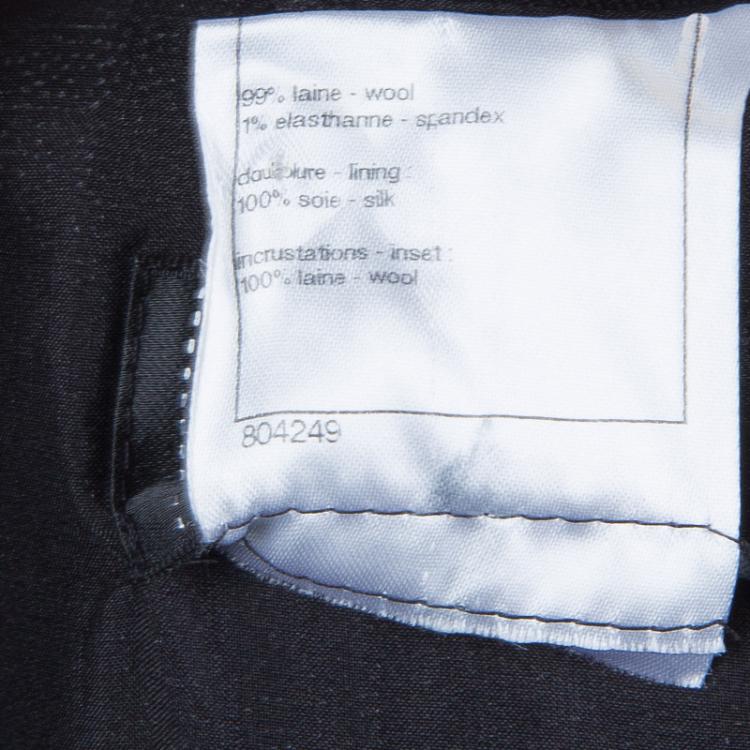 99% laine - wool
1% elasthanne - spandex
doublure - lining :
100% soie - silk
incrustations - inset :
100% laine - wool
804249